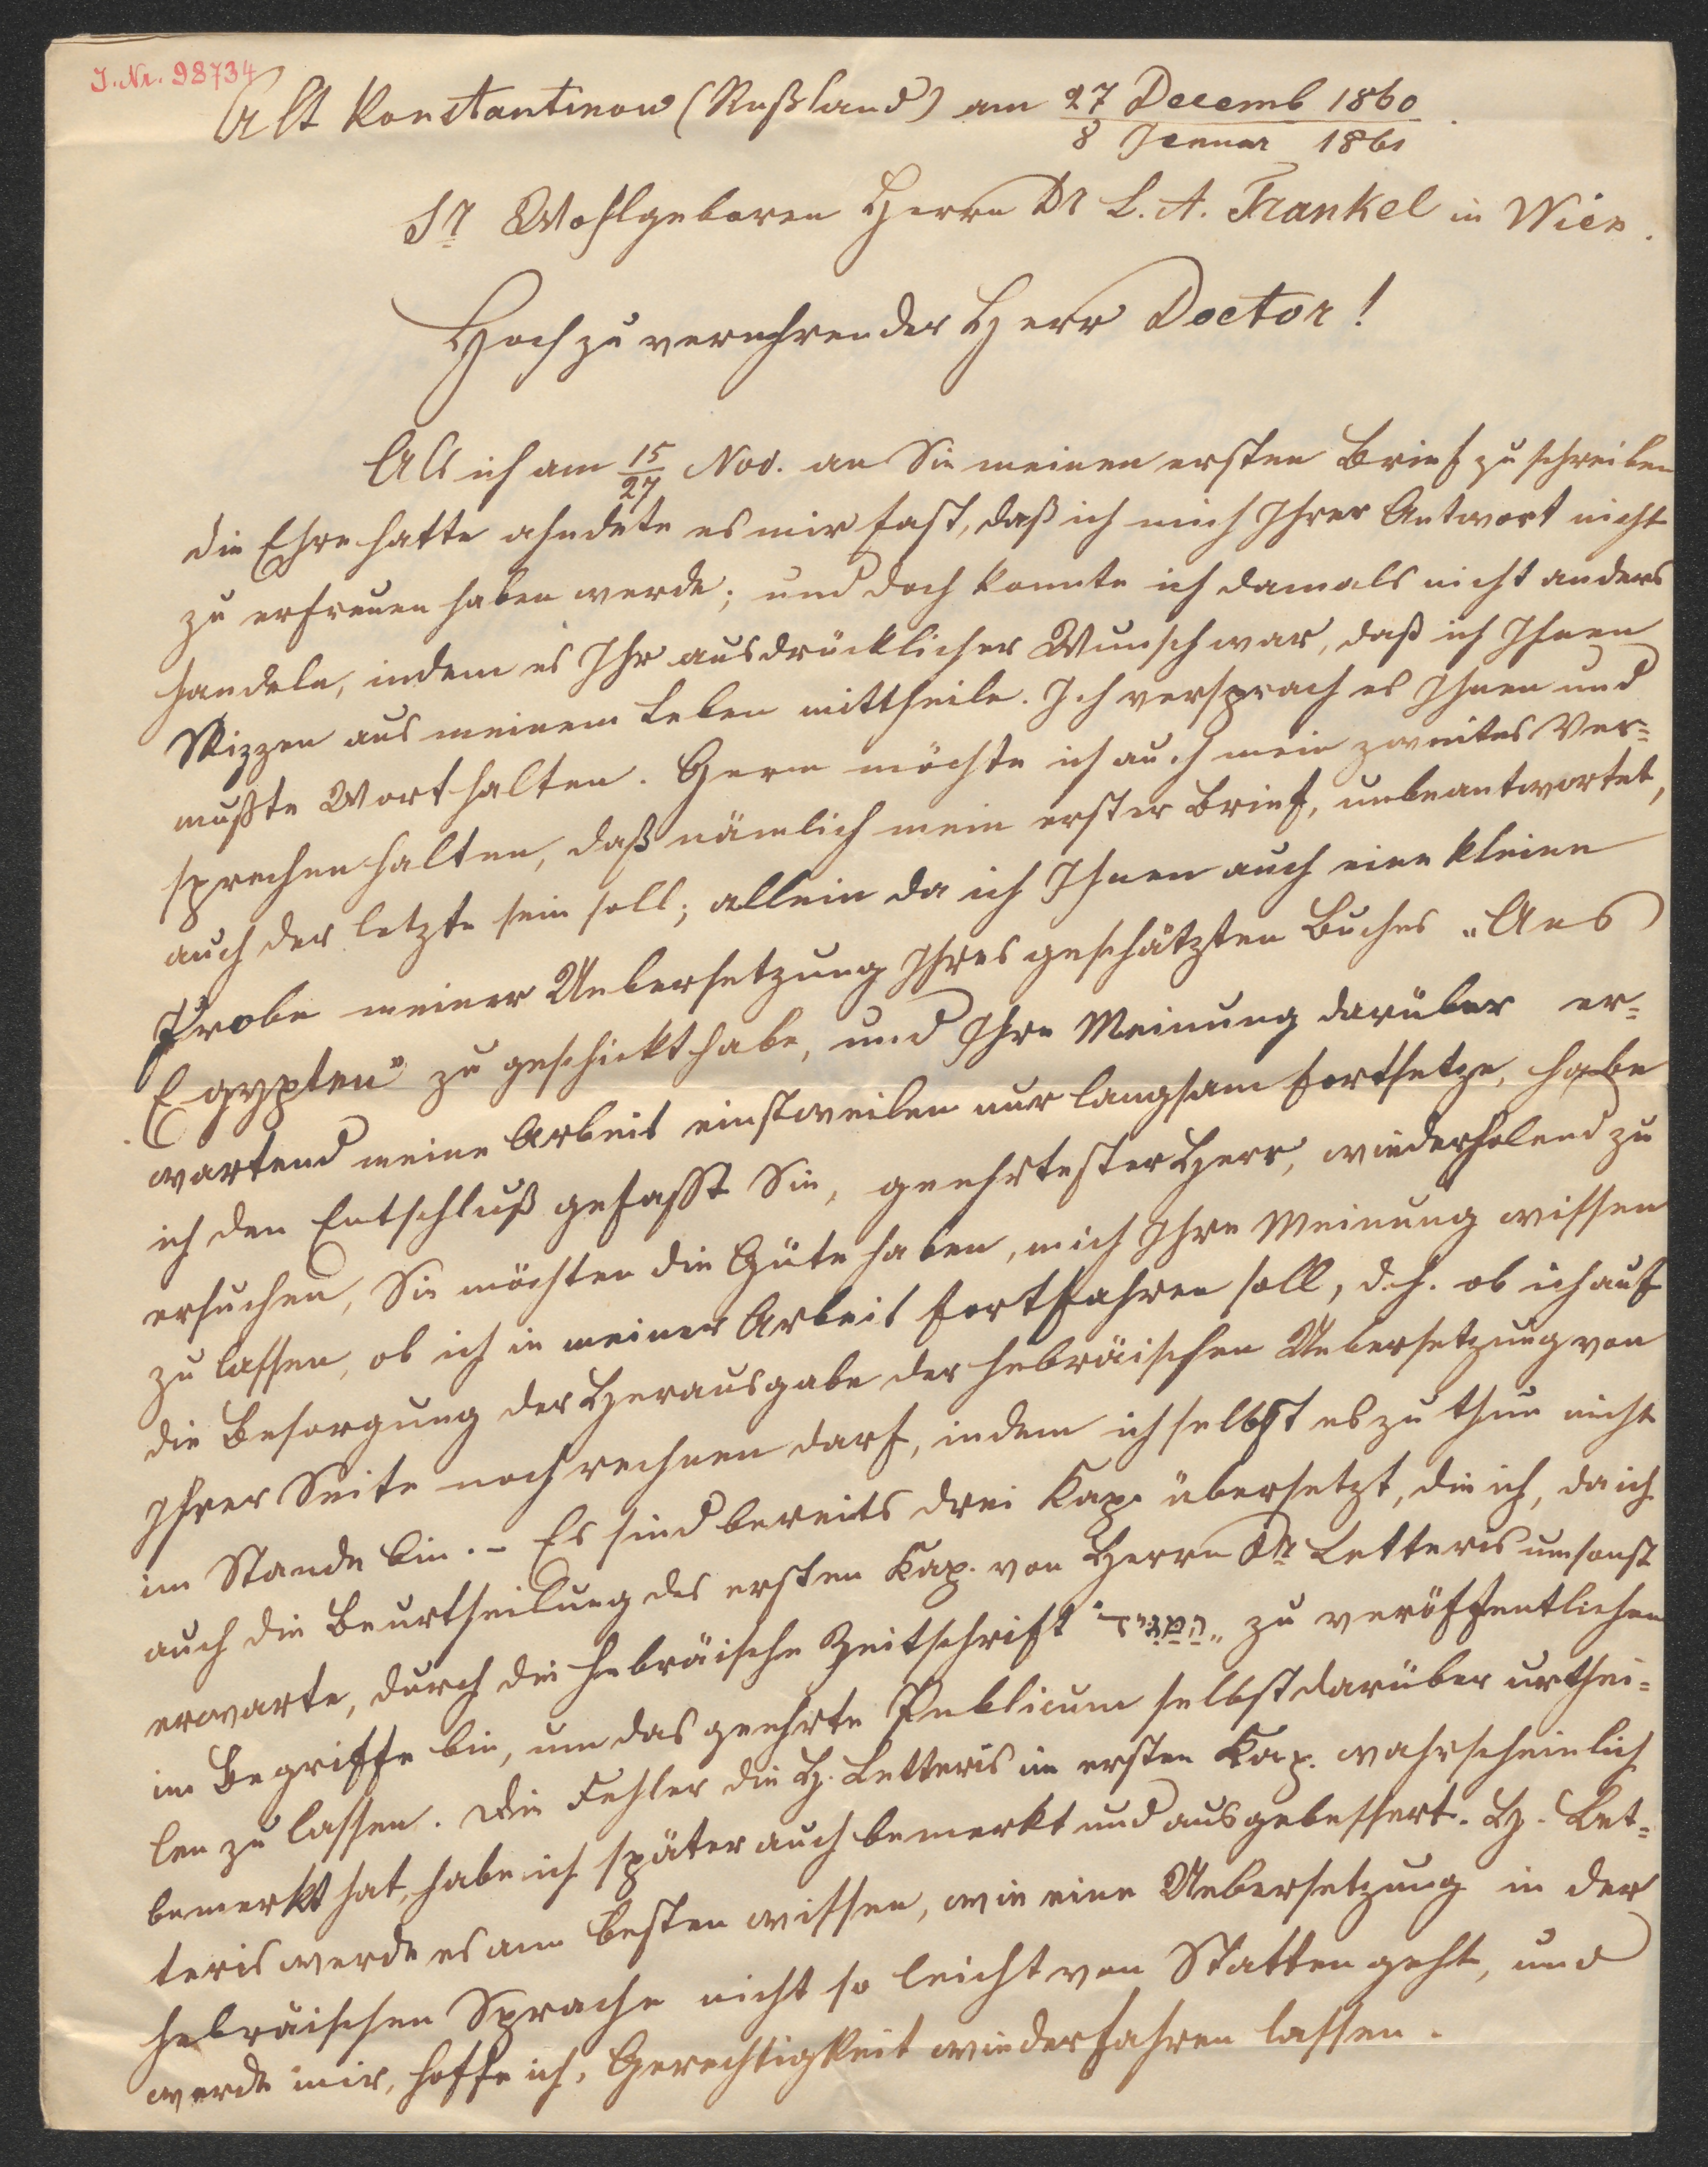 J. Nr. 98734
Alt Konstantinow (Rußland) am 27 Decemb 1860
8 Jenuar 1861
Sr Wohlgeboren Herrn Dr L. A. Frankel in Wien.
Hochzuverehrender Herr Doctor!
Als ich am 15/27 Nov. an Sie meinen ersten Brief zu schreiben
die Ehre hatte ahndete es mir fast, daß ich mich Ihrer Antwort nicht
zu erfreuen haben werde; und doch konnte ich damals nicht anders
handeln, indem es Ihr ausdrücklicher Wunsch war, daß ich Ihnen
Skizzen aus meinem Leben mittheile. Ich versprach es Ihnen und
mußte Wort halten. Gern möchte ich auch mein zweites Ver=
sprechen halten, daß nämlich mein erster Brief, unbeantwortet,
auch der letzte sein soll; allein da ich Ihnen auch eine kleine
Probe meiner Uebersetzung Ihres geschätzten Buches „Aus
Egypten" zu geschickt habe, und Ihre Meinung darüber er=
wartend meine Arbeit einstweilen nur langsam fortsetze, habe
ich den Entschluß gefasst Sie, geehrtester Herr, wiederholend zu
ersuchen, Sie möchten die Güte haben, mich Ihre Meinung wissen
zu lassen, ob ich in meiner Arbeit fortfahren soll, d.h. ob ich auf
die Besorgung der Herausgabe der hebräischen Uebersetzung von
Ihrer Seite noch rechnen darf, indem ich selbst es zu thun nicht
im Stande bin. – Es sind bereits drei Kap. übersetzt, die ich, da ich
auch die Beurtheilung des ersten Kap. von Herrn Dr Letteris umsonst
erwarte, durch die hebräische Zeitschrift „המגיד" zu veröffentlichen
im Begriffe bin, um das geehrte Publicum selbst darüber urthei=
len zu lassen. Die Fehler die H. Letteris im ersten Kap. wahrscheinlich
bemerkt hat, habe ich später auch bemerkt und ausgebessert. H. Let=
teris werde es am besten wissen, wie eine Uebersetzung in der
hebräischen Sprache nicht so leicht von Statten geht, und
werde mir, hoffe ich, Gerechtigkeit wiederfahren lassen.